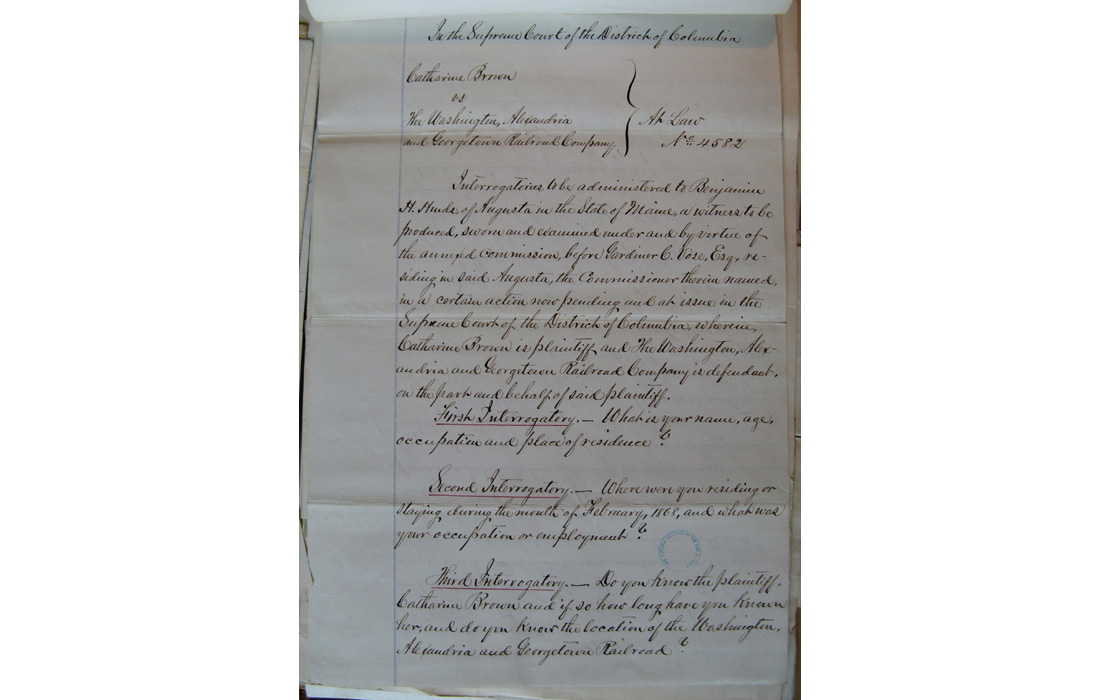 In the Supreme Court of the District of Columbia
Catharine Brown
vs
The Washington, Alexandria
and Georgetown Railroad Company
At Law
No. 4582
Interrogatories to be administered to Benjamin
H. Hinds, of Augusta in the State of Maine, a witness to be
produced, sworn and examined under and by virtue of
the annexed commission, before Gardiner C. Vose, Esq., re-
siding in said Augusta, the Commissioner therein named,
in a certain action now pending and at issue in the
Supreme Court of the District of Columbia, wherein,
Catharine Brown is plaintiff and The Washington, Alex-
andria and Georgetown Railroad Company is defendant,
on the part and behalf of said plaintiff.
First Interrogatory. — What is your name, age,
occupation and place of residence?
Second Interrogatory. — Where were you residing or
staying during the month of February, 1868, and what was
your occupation or employment?
Third Interrogatory. — Do you know the plaintiff,
Catharine Brown and if so how long have you known
her, and do you know the location of the Washington,
Alexandria and Georgetown Railroad?